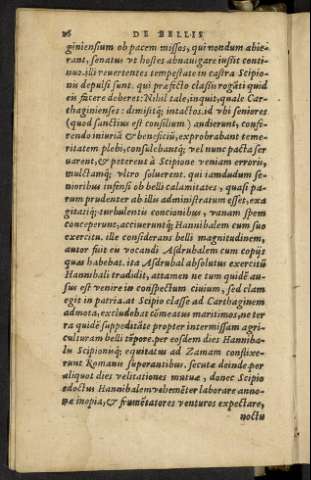 26 DE BELLIS
giniensium ob pacem missos, qui nondum abie-
rant, senatus vt hostes abnauigare iussit conti-
nuo. illi reuertentes tempestate in castra Scipio-
nis depulsi sunt. qui præfecto classis rogāti quid
eis facere deberet: Nihil tale, inquit, quale Car-
thaginienses: dimisitq́; intactos. id vbi seniores
(quod sanctius est consilium) audierunt, confe-
rendo iniuriā & beneficiū, exprobrabant teme-
ritatem plebi, consulebantq́; vel nunc pacta ser
uarent, & peterent à Scipione veniam erroris,
mulctamq́; vltro soluerent. qui iamdudum se-
nioribus infensi ob belli calamitates, quasi pa-
rum prudenter ab illis administratum esset, exa
gitatiq́; turbulentis concionibus, vanam spem
conceperunt, acciueruntq́; Hannibalem cum suo
exercitu. ille considerans belli magnitudinem,
autor fuit eis vocandi Asdrubalem cum copijs
quas habebat. ita Asdrubal absolutus exercitū
Hannibali tradidit, attamen ne tum quidē au-
sus est venire in conspectum ciuium, sed clam
egit in patria. at Scipio classe ad Carthaginem
admota, excludebat cōmeatus maritimos, ne ter
ra quidē suppeditāte propter intermissam agri-
culturam belli tēpore. per eosdem dies Hanniba-
lis Scipionisq́; equitatus ad Zamam conflixe-
runt Romanis superantibus. secutæ deinde per
aliquot dies velitationes mutuæ, donec Scipio
edoctus Hannibalem vehemēter laborare anno-
næ inopia, & frumētatores venturos expectare,
noctu